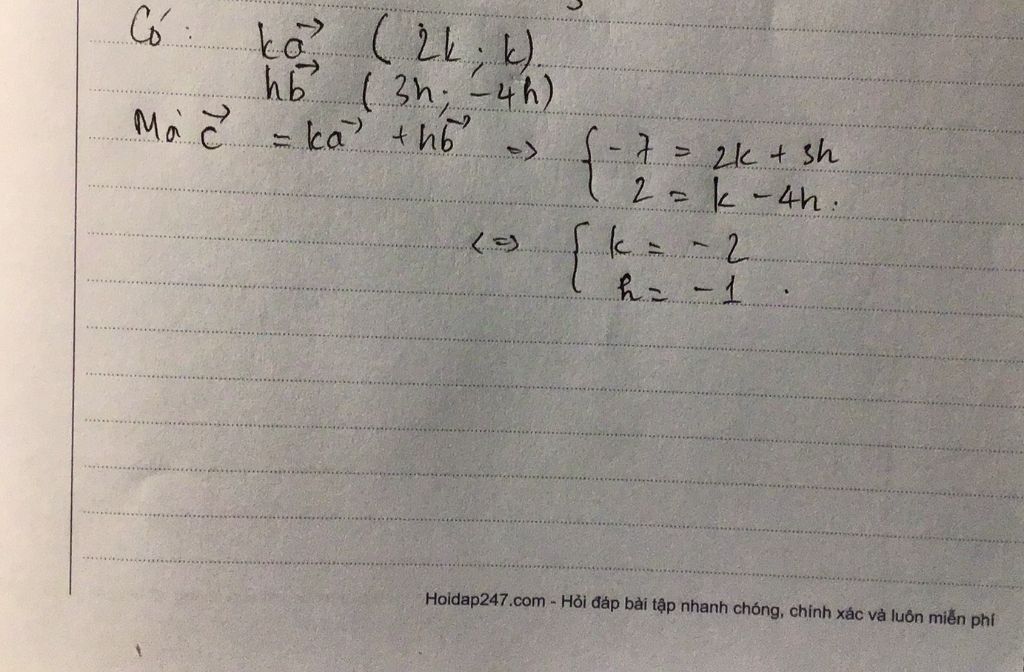 Có : ka⃗ ( 2k ; k).
hb⃗ ( 3h; -4h)
Mà c⃗ = ka⃗ + hb⃗ => { -7 = 2k + 3h
2 = k - 4h.
<=> { k = -2
h = -1 .
Hoidap247.com - Hỏi đáp bài tập nhanh chóng, chính xác và luôn miễn phí